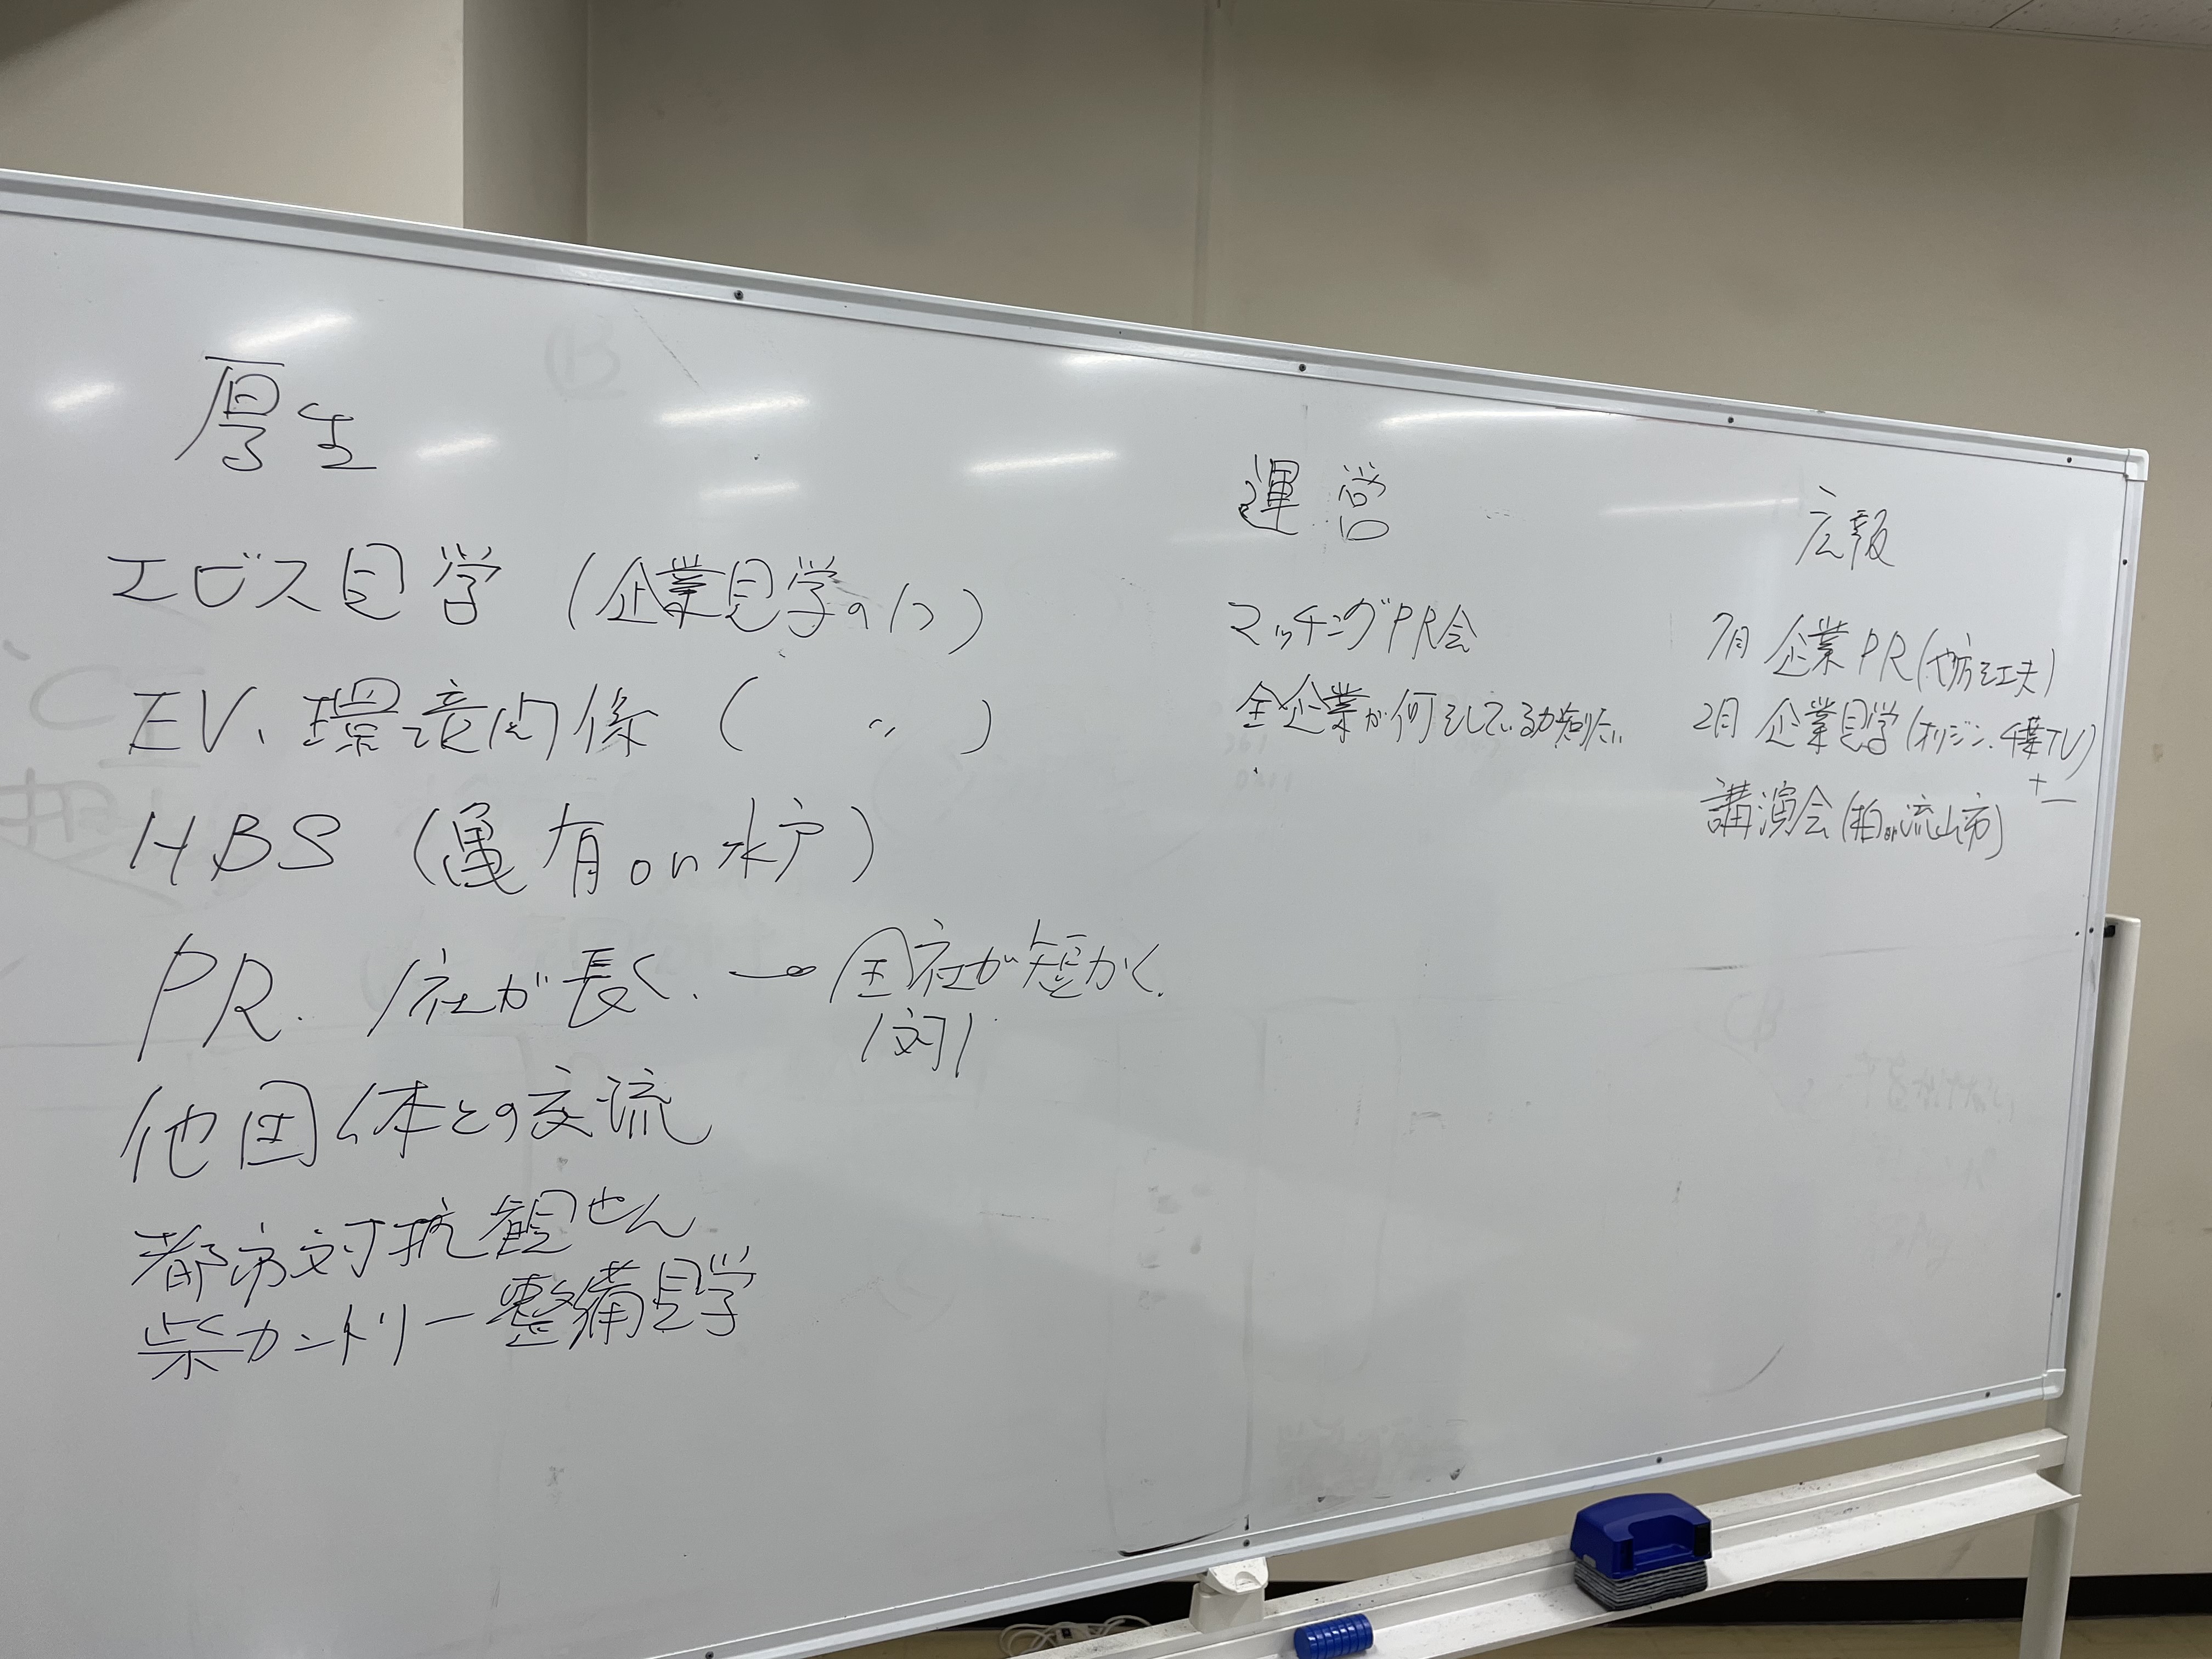 厚生
エビス見学 (企業見学の1つ)
EV、環境関係 ( 〃 )
HBS (亀有or水戸)
PR. 1社が長く. → 全社が短かく.
1対1
他団体との交流
都市対抗観せん
柴カントリー整備見学
運営
マッチングPR会
全企業が何をしているか知りたい
広報
7月 企業PR(や方を工夫)
2月 企業見学(オリジン、千葉TV)
+
講演会(柏or流山市)